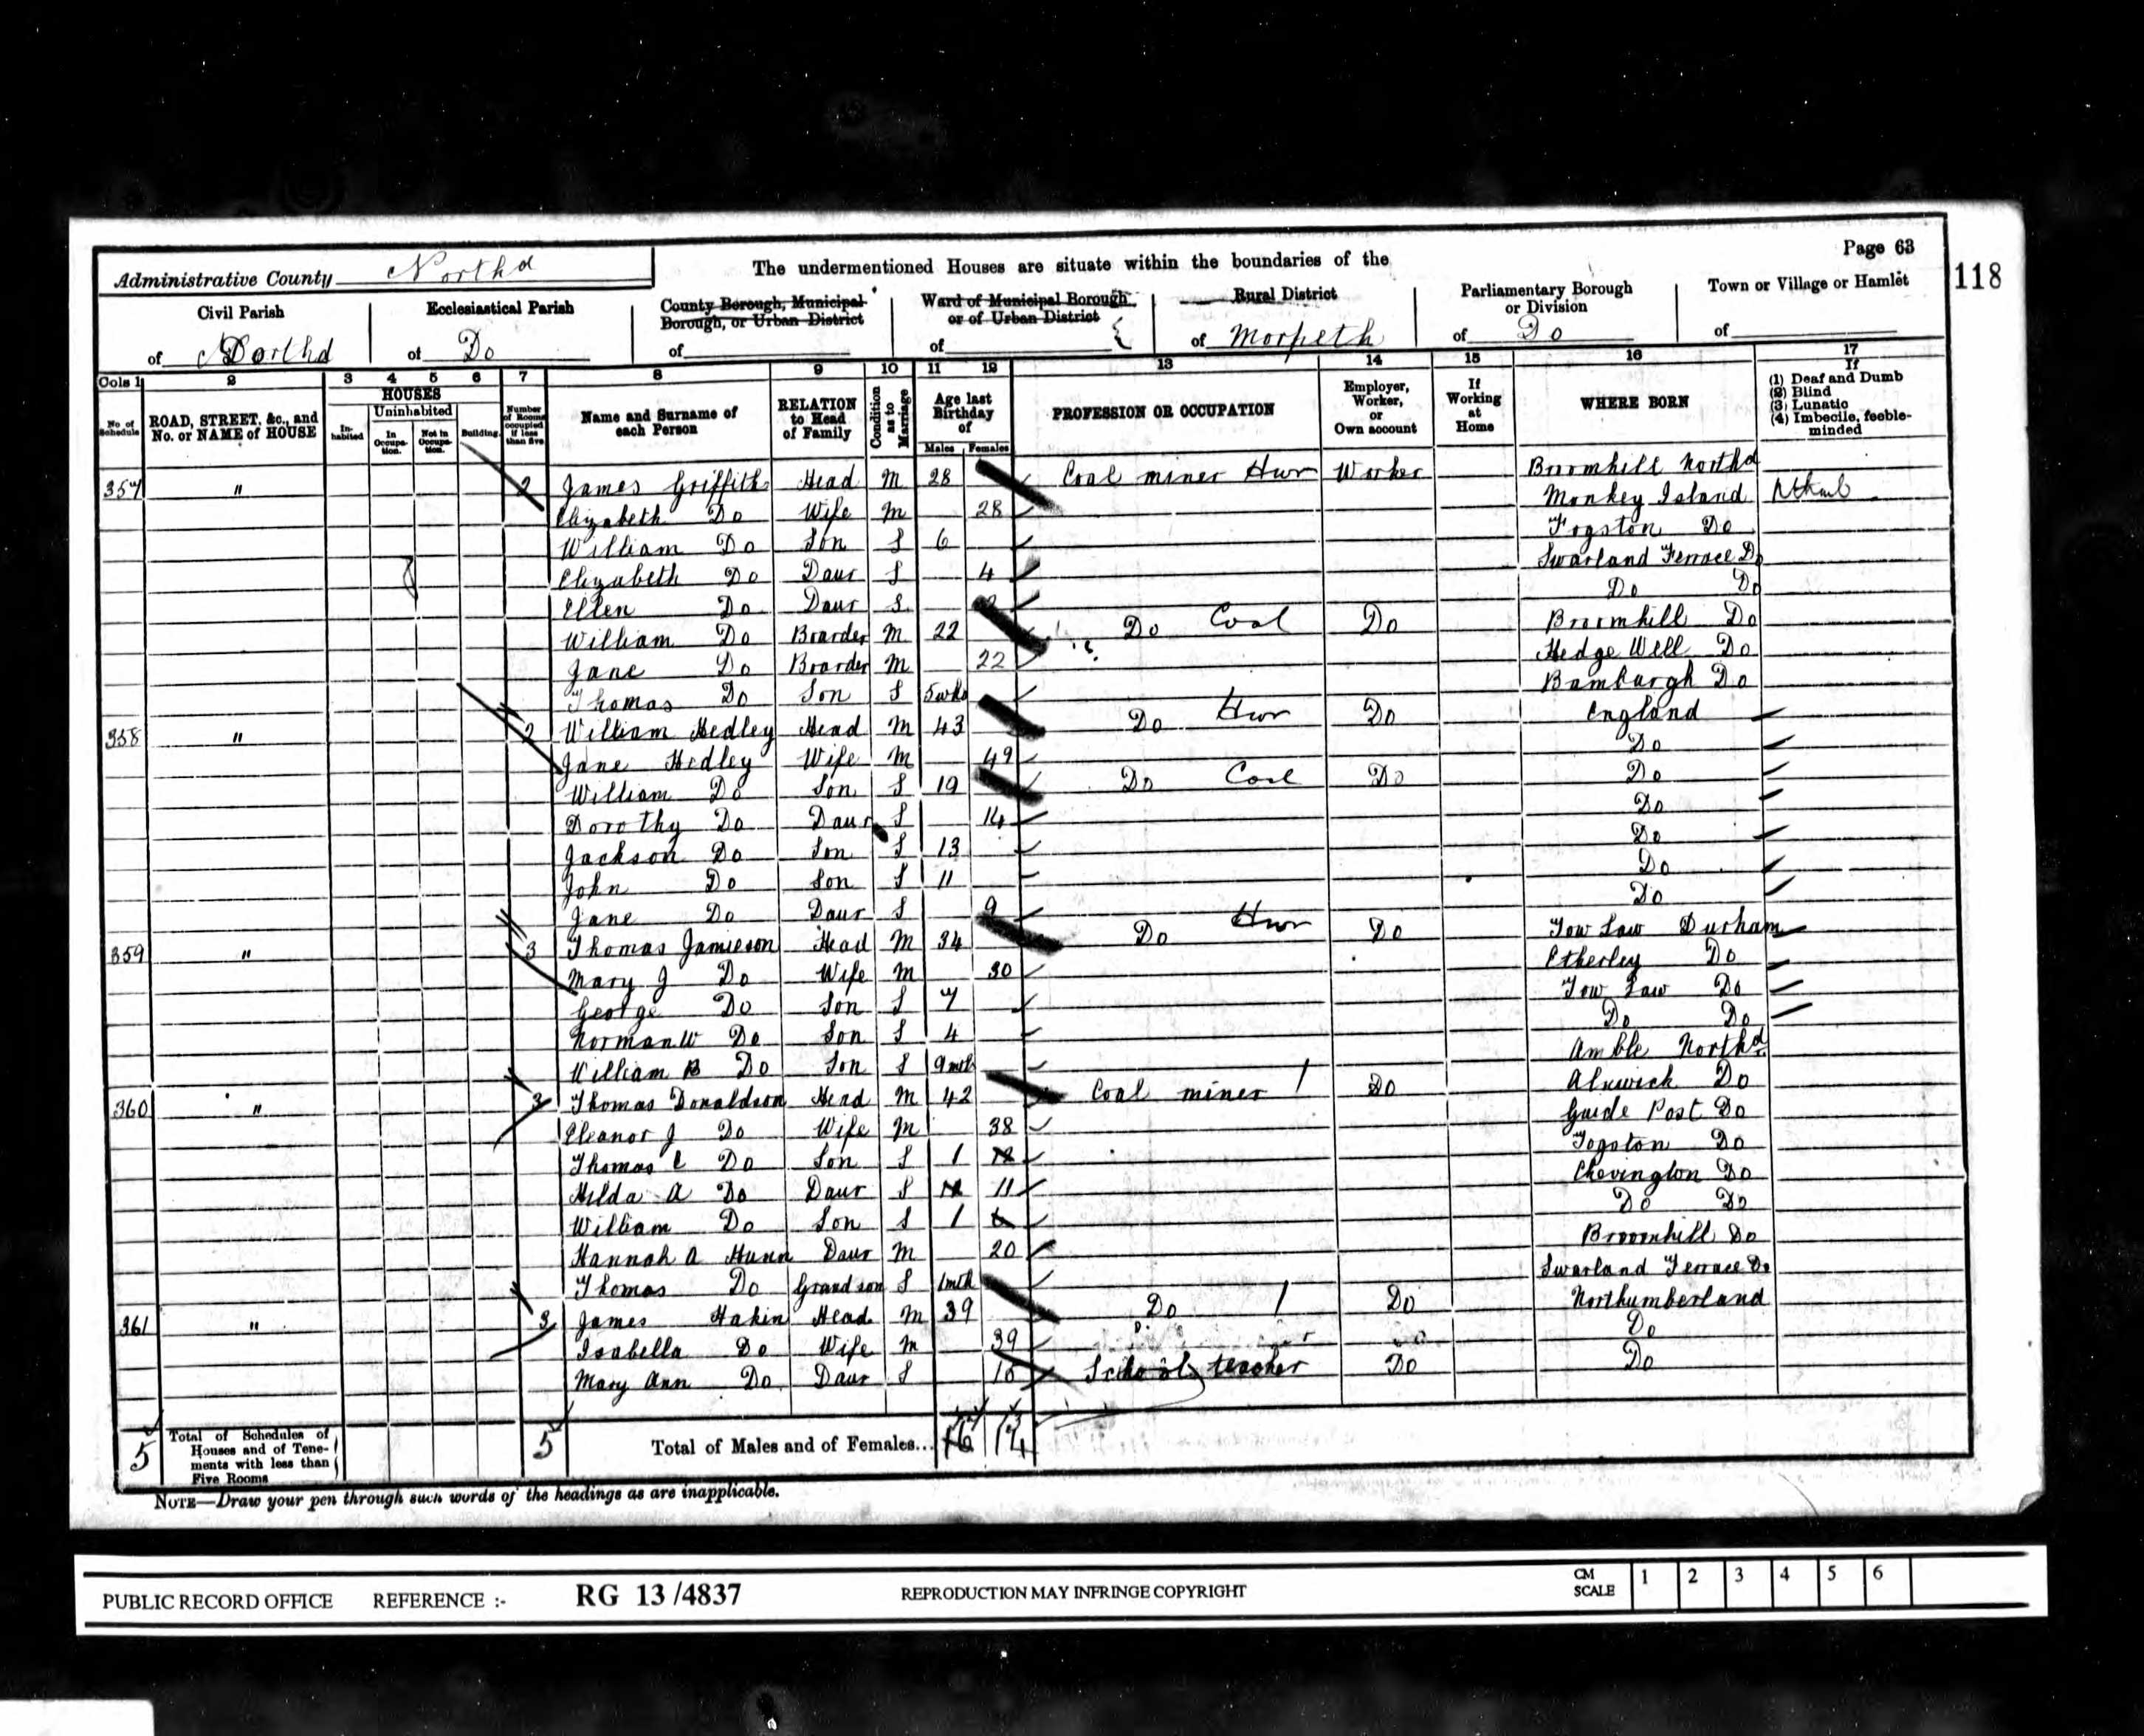 Page 63
118
Administrative County Northd
The undermentioned Houses are situate within the boundaries of the
Civil Parish of
Ecclesiastical Parish of Do
County Borough, Municipal Borough, or Urban District of
Ward of Municipal Borough or of Urban District of
Rural District of Morpeth
Parliamentary Borough or Division of Do
Town or Village or Hamlet of
Cols 1 2 3 4 5 6 7 8 9 10 11 12 13 14 15 16 17
No. of Schedule
ROAD, STREET, &c., and No. or NAME of HOUSE
HOUSES
Inhabited
Uninhabited
In Occupation.
Not in Occupation.
Building.
Number of Rooms occupied if less than five
Name and Surname of each Person
RELATION to Head of Family
Condition as to Marriage
Age last Birthday of
Males Females
PROFESSION OR OCCUPATION
Employer, Worker, or Own account
If Working at Home
WHERE BORN
If (1) Deaf and Dumb (2) Blind (3) Lunatic (4) Imbecile, feeble-minded
357 " 2 James Griffith Head M 28 Coal miner Hwr Worker Broomhill Northd
Elizabeth Do Wife M 28 Monkey Island
William Do Son S 6 Togston Do
Elizabeth Do Daur S 4 Swarland Terrace Do
Ellen Do Daur S Do Do
William Do Boarder M 22 Do Coal Do Broomhill Do
Jane Do Boarder M 22 Hedge Well Do
Thomas Do Son S 5wks Bamburgh Do
358 " 2 William Hedley Head M 43 Do Hwr Do England
Jane Hedley Wife M 49 Do
William Do Son S 19 Do Coal Do Do
Dorothy Do Daur S 14 Do
Jackson Do Son S 13 Do
John Do Son S 11 Do
Jane Do Daur S 9 Do
359 " 3 Thomas Jamieson Head M 34 Do Hwr Do Tow Law Durham
Mary J Do Wife M 30 Etherley Do
George Do Son S 7 Tow Law Do
Norman W Do Son S 4 Do Do
William B Do Son S 9mth Amble Northd
360 " 3 Thomas Donaldson Head M 42 Coal miner / Do Alnwick Do
Eleanor J Do Wife M 38 Guide Post Do
Thomas Do Son S 1 Togston Do
Hilda A Do Daur S 11 Chevington Do
William Do Son S 1 Do Do
Hannah A Hunn Daur M 20 Broomhill Do
Thomas Do Grandson S 1mth Swarland Terrace Do
361 " 3 James Hakin Head M 39 Do / Do Northumberland
Isabella Do Wife M 39 Do
Mary Ann Do Daur S School teacher Do Do
5 Total of Schedules of Houses and of Tenements with less than Five Rooms 5 Total of Males and of Females...
NOTE—Draw your pen through such words of the headings as are inapplicable.
PUBLIC RECORD OFFICE REFERENCE :- RG 13/4837 REPRODUCTION MAY INFRINGE COPYRIGHT CM SCALE 1 2 3 4 5 6